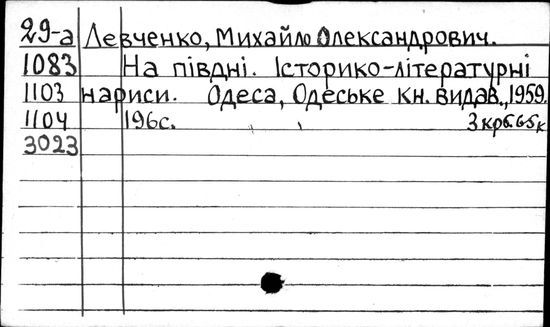 29-а Левченко, Михайло Олександрович.
1083 На півдні. Історико-літературні
1103 нариси. Одеса, Одеське кн. видав., 1959.
1104 196с. 3 крб. 65к
3023